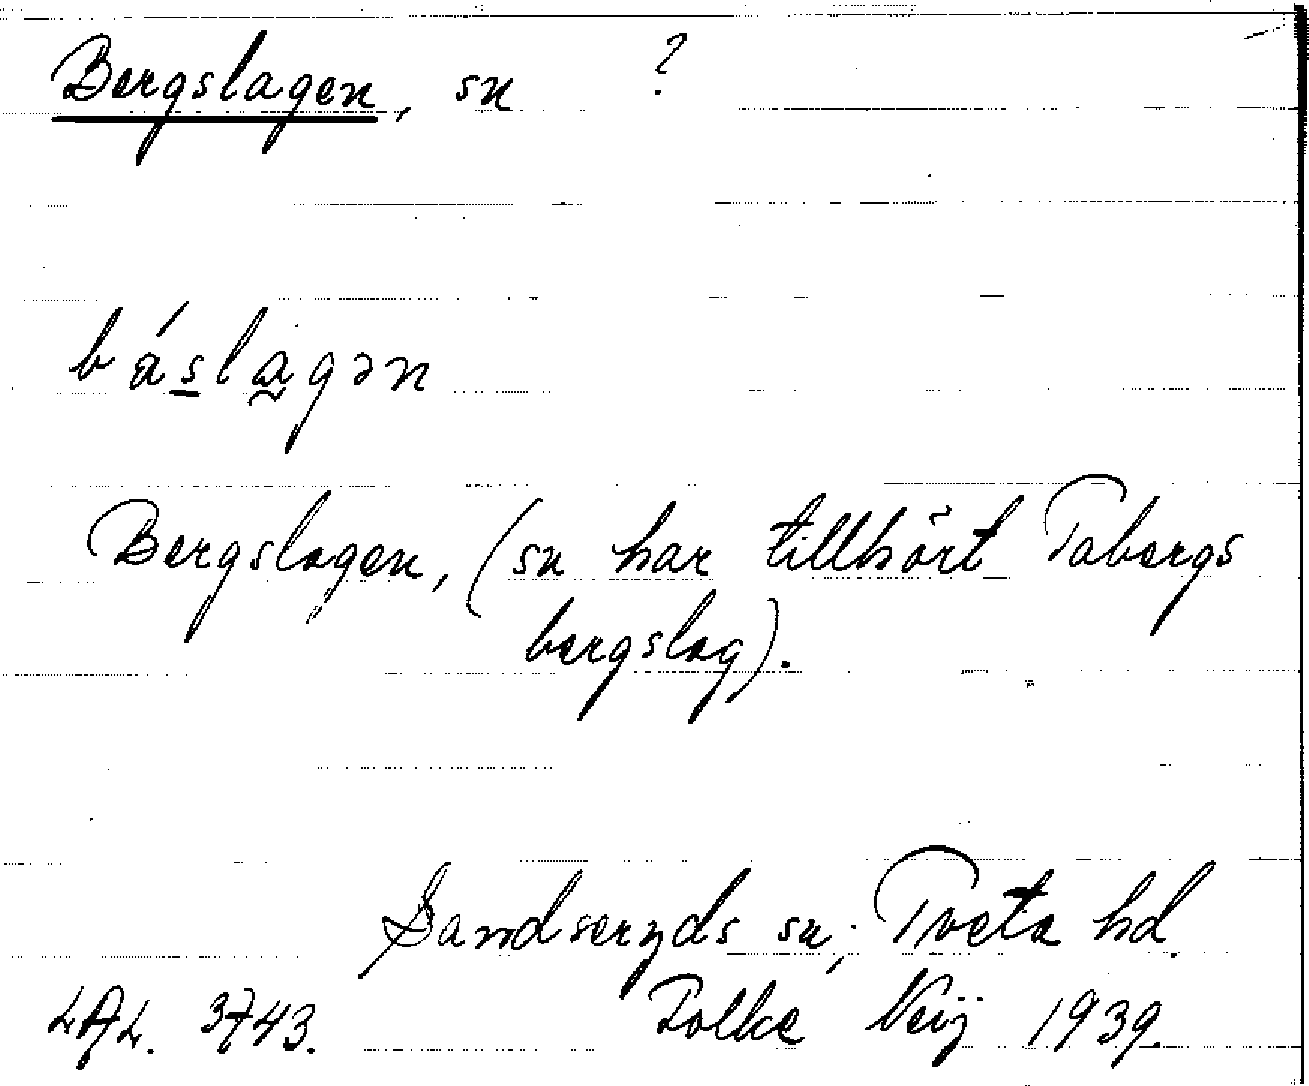 Bergslagen, sn ?
báslagən
Bergslagen, (sn har tillhört Tabergs
bergslag).
Sandseryds sn; Tveta hd.
LAL. 3743. Folke Neij 1939.